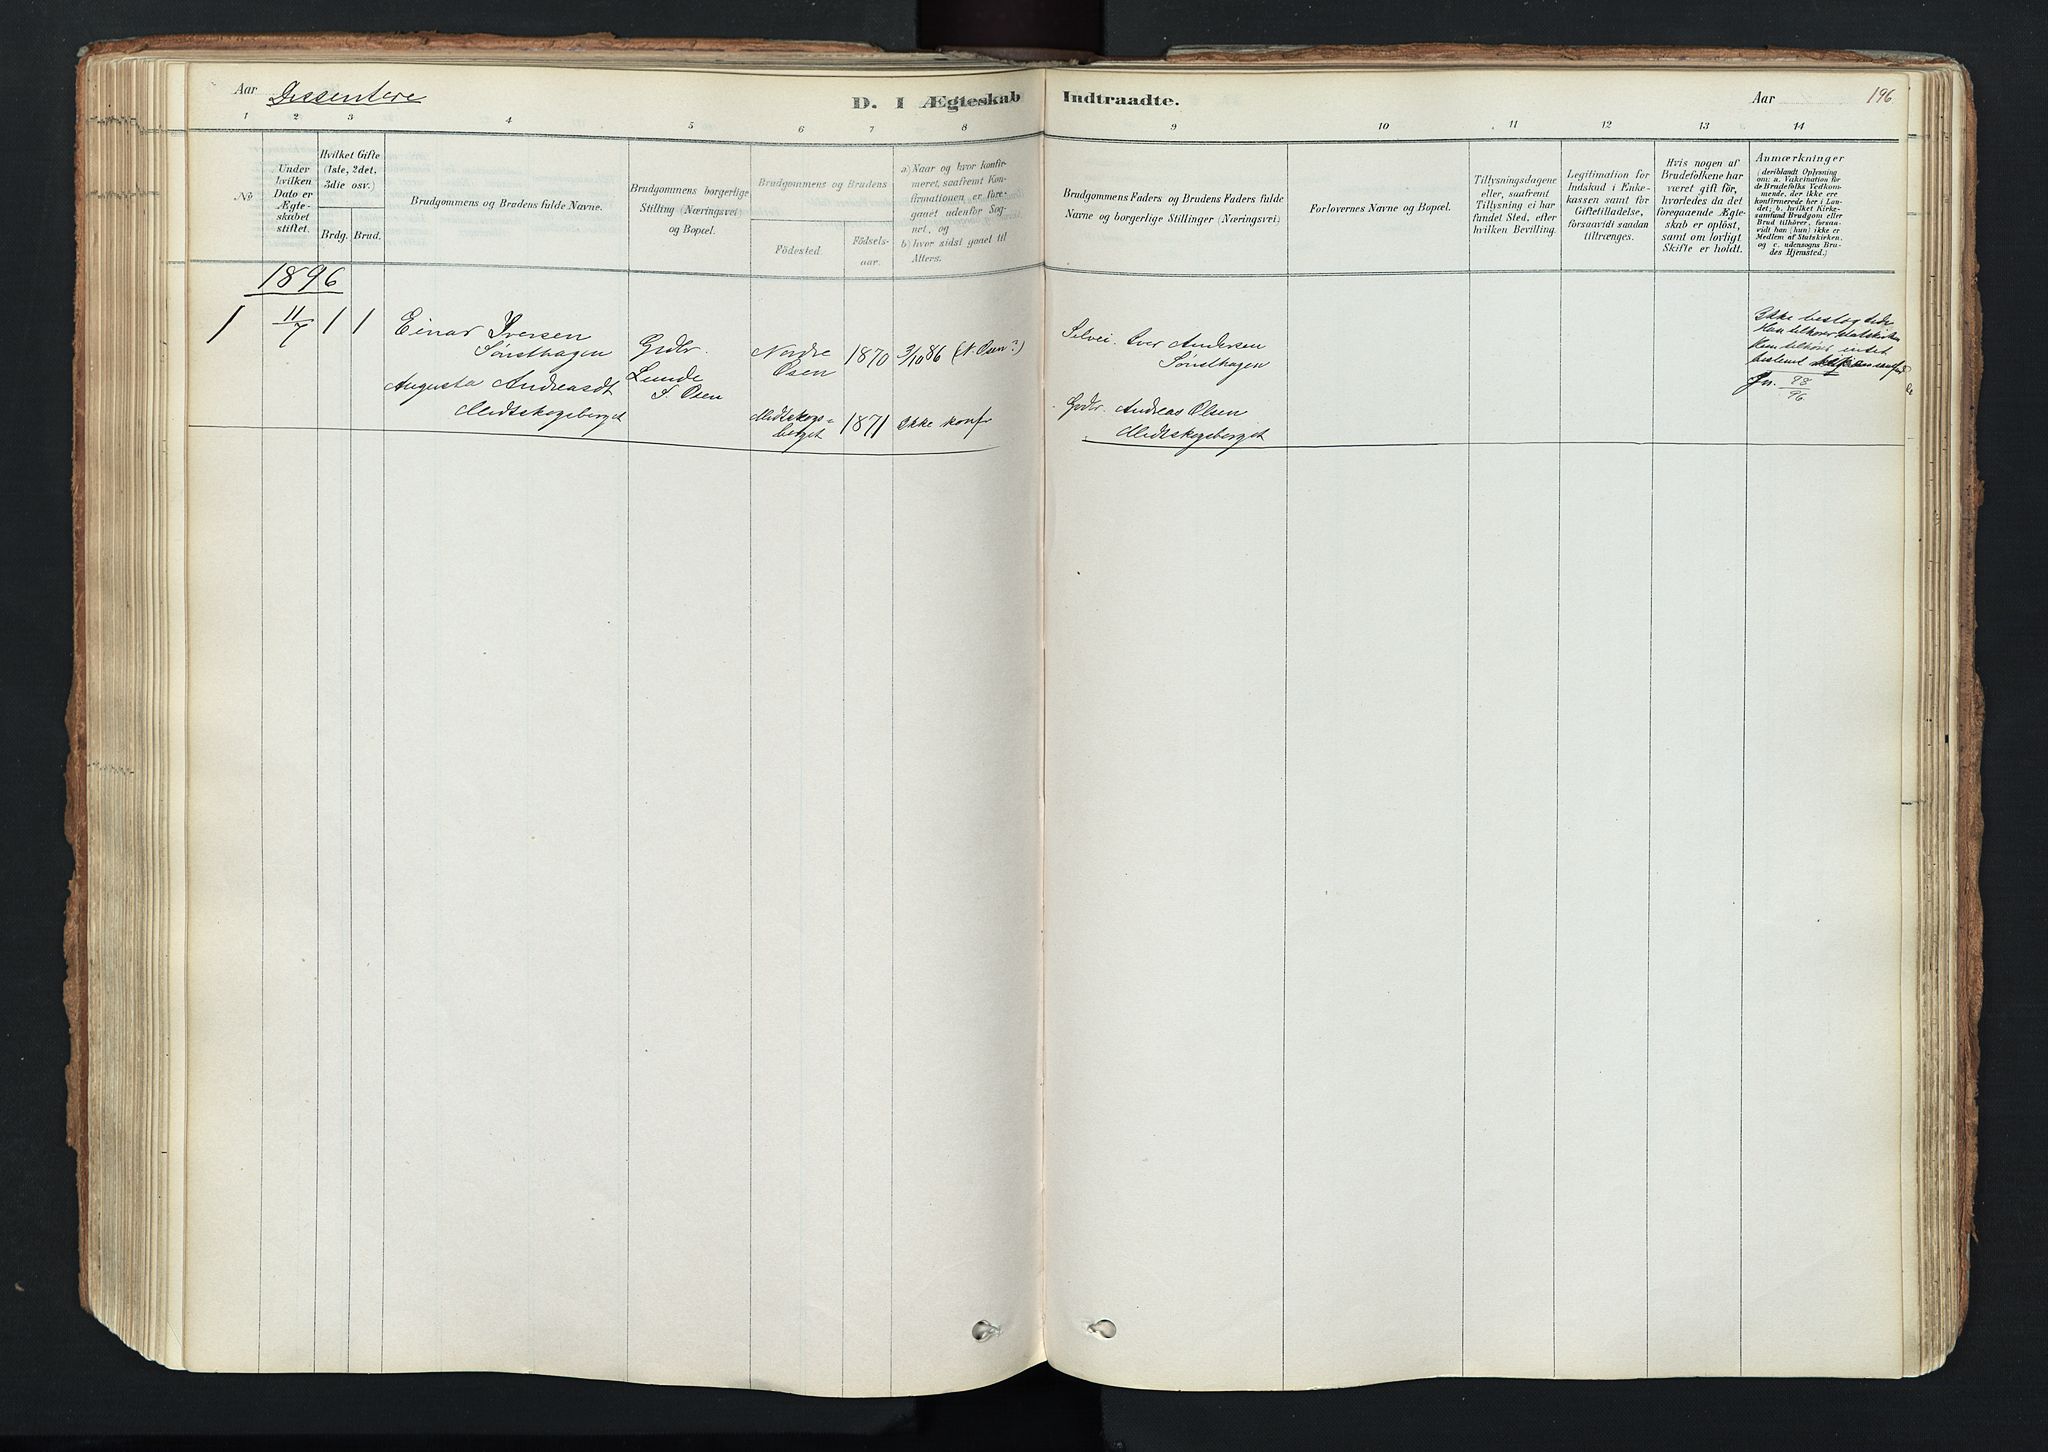 Aar Dissentere
D. I Ægteskab Indtraadte.
Aar 196
1 2 3 4 5 6 7 8 9 10 11 12 13 14
No
Under
hvilken
Dato er
Ægte-
skabet
stiftet.
Hvilket Gifte
(1ste, 2det,
3die osv.)
Brdg. Brud.
Brudgommens og Brudens fulde Navne.
Brudgommens borgerlige
Stilling (Næringsvei)
og Bopæl.
Brudgommens og Brudens
Födested.
Födsels-
aar.
a) Naar og hvor konfir-
meret, saafremt Kon-
firmationen er fore-
gaaet udenfor Sog-
net, og
b) hvor sidst gaaet til
Alters.
Brudgommens Faders og Brudens Faders fulde
Navne og borgerlige Stillinger (Næringsvei)
Forlovernes Navne og Bopæl.
Tillysningsdagene
eller, saafremt
Tillysning ei har
fundet Sted, efter
hvilken Bevilling.
Legitimation for
Indskud i Enke-
kassen samt for
Giftetilladelse,
forsaavidt saadan
tiltrænges.
Hvis nogen af
Brudefolkene har
været gift før,
hvorledes da det
foregaaende Ægte-
skab er oplöst,
samt om lovligt
Skifte er holdt.
Anmærkninger
(deriblandt Oplysning
om: a. Vakcination for
de Brudefolks Vedkom-
mende, der ikke ere
konfirmerede her i Lan-
det; b. hvilket Kirke-
samfund Brudgom eller
Brud tilhörer, forsaa-
vidt han (hun) ikke er
Medlem af Statskirken,
og c. udensogns Bru-
des Hjemsted.)
1896
1 11/7 1 1 Einar Iversen
Sønsthagen
Grdbr.
Lunde
S. Osen
Nordre
Osen
1870 3/10 86 (N. Osen?)
Selvei. Iver Andersen
Sønsthagen
Augusta Andreasdt
Midtskogsberget
Midtskogs-
berget
1871 Ikke konf
Grdbr. Andreas Olsen
Midtskogsberget
Ikke beslægtede
Han tilhører Statskirken
Hun tilhører intet
bestemt
Jn. 93/96